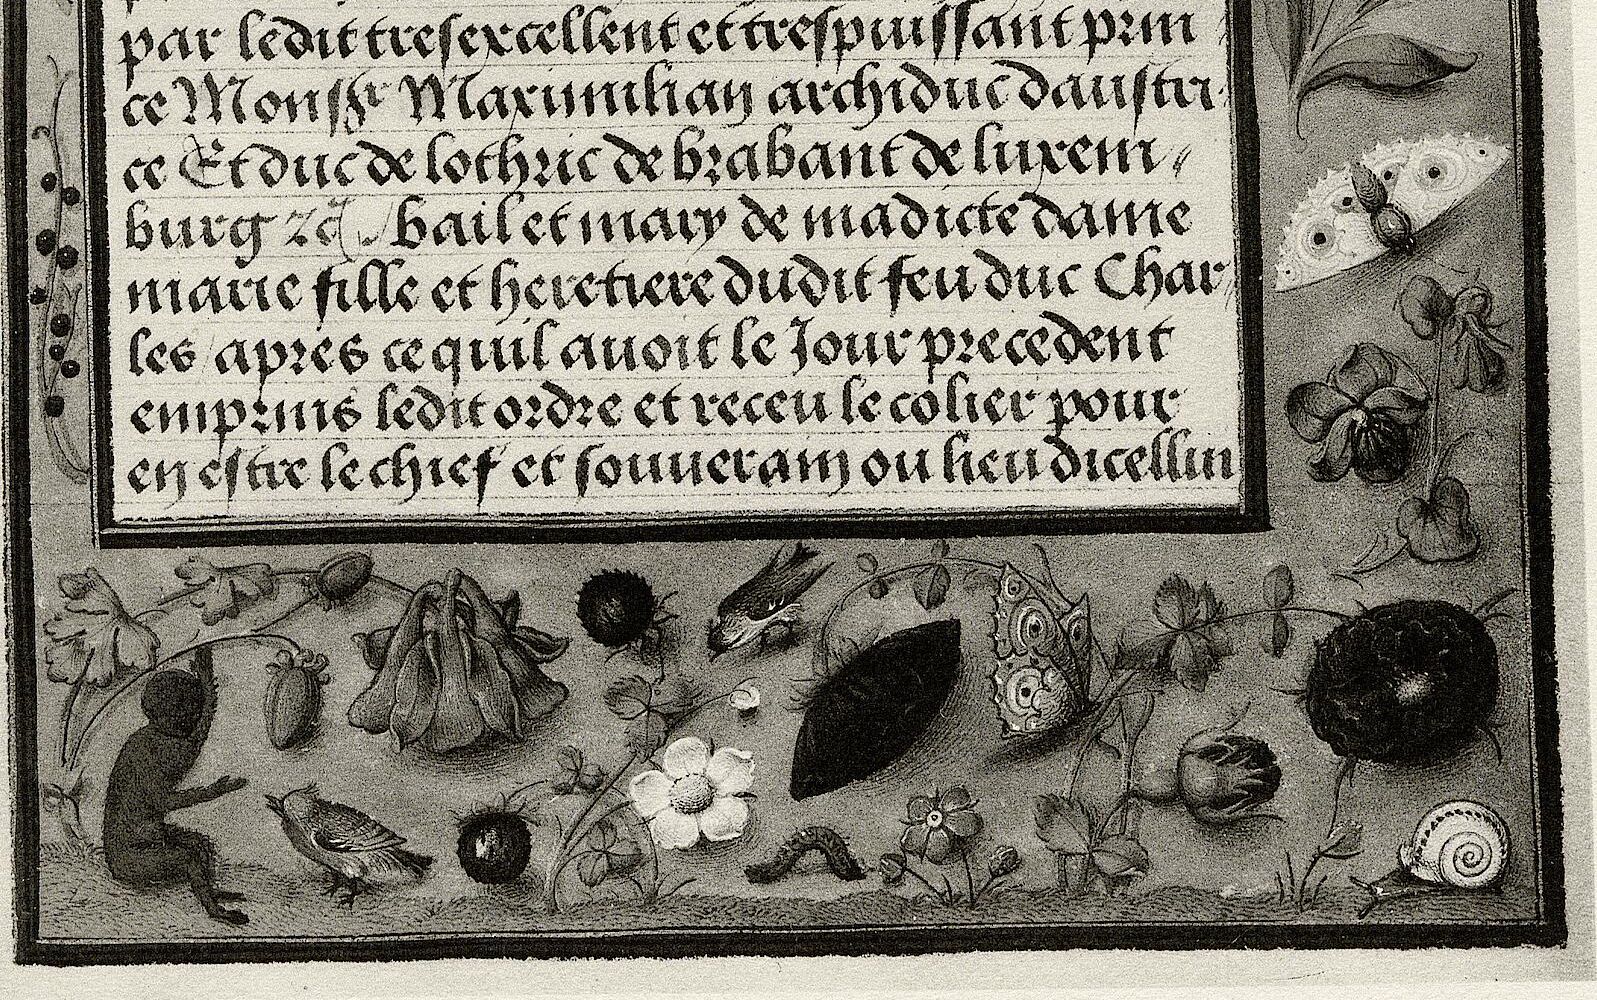 par ledit tresexcellent et trespuissant prin
ce Monsgr Maximilian archiduc daustri
ce Et duc de lothric de brabant de luxem
burg bail et mary de madicte dame
marie fille et heretiere dudit feu duc Char
les apres ce quil auoit le Jour precedent
emprins ledit ordre et receu le colier pour
en estre le chief et souuerain ou lieu dicellui